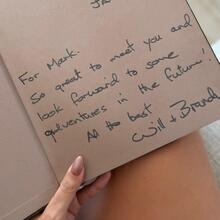 For Mark.
So great to meet you and
look forward to some
adventures in the future!
All the best
Will +